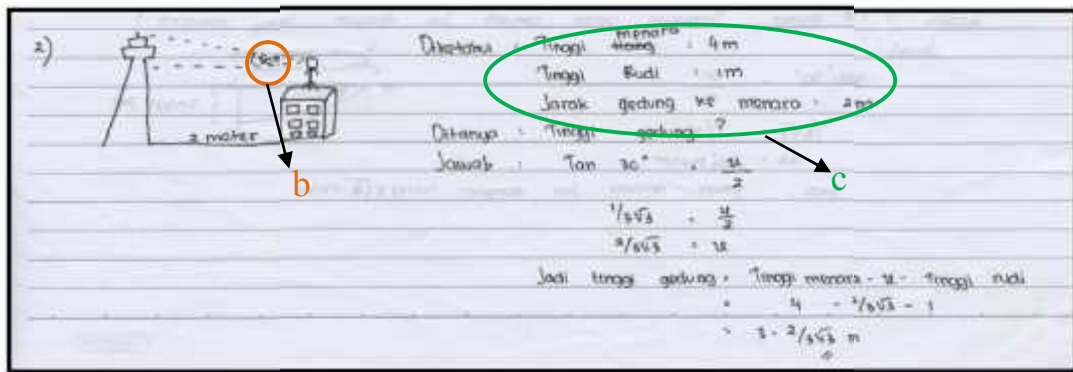 2)
Diketahui : Tinggi menara : 4 m
Tinggi Rudi : 1m
Jarak gedung ke menara : 2m
2 meter
b
Ditanya : Tinggi gedung ?
Jawab : Tan 30° = u/2
c
1/3√3 = u/2
2/3√3 = u
Jadi tinggi gedung = Tinggi menara - u - Tinggi rudi
= 4 - 2/3√3 - 1
= 3 - 2/3√3 m